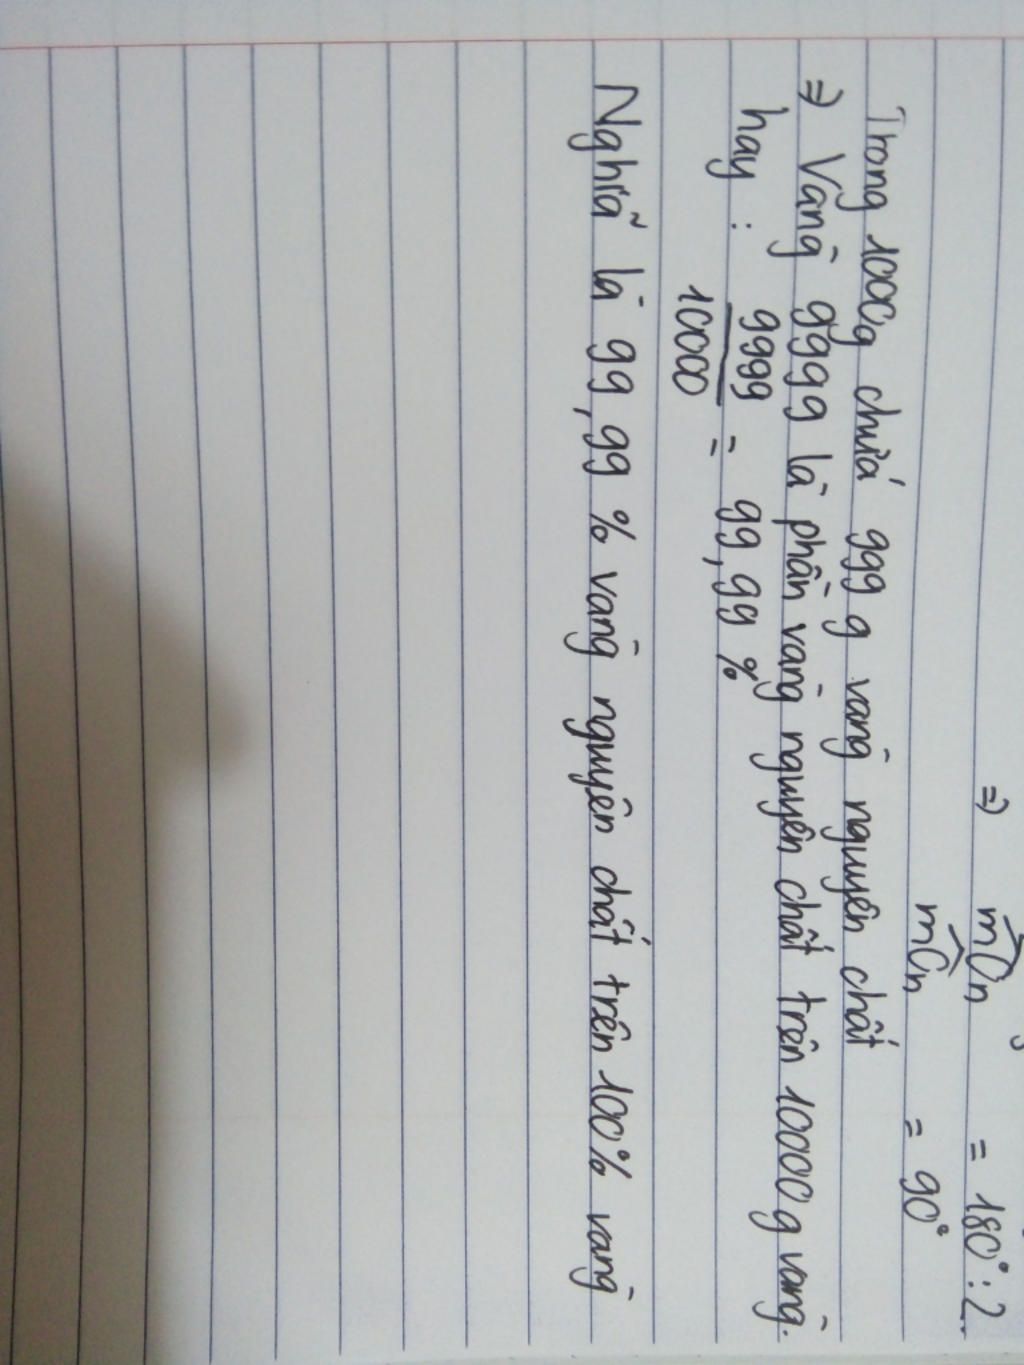 ⇒ mOn = 180° : 2
mOn = 90°
Trong 1000g chứa 999 g vàng nguyên chất
⇒ Vàng 9999 là phần vàng nguyên chất trên 10000 g vàng.
hay : 9999/10000 = 99,99 %
Nghĩa là 99,99 % vàng nguyên chất trên 100% vàng